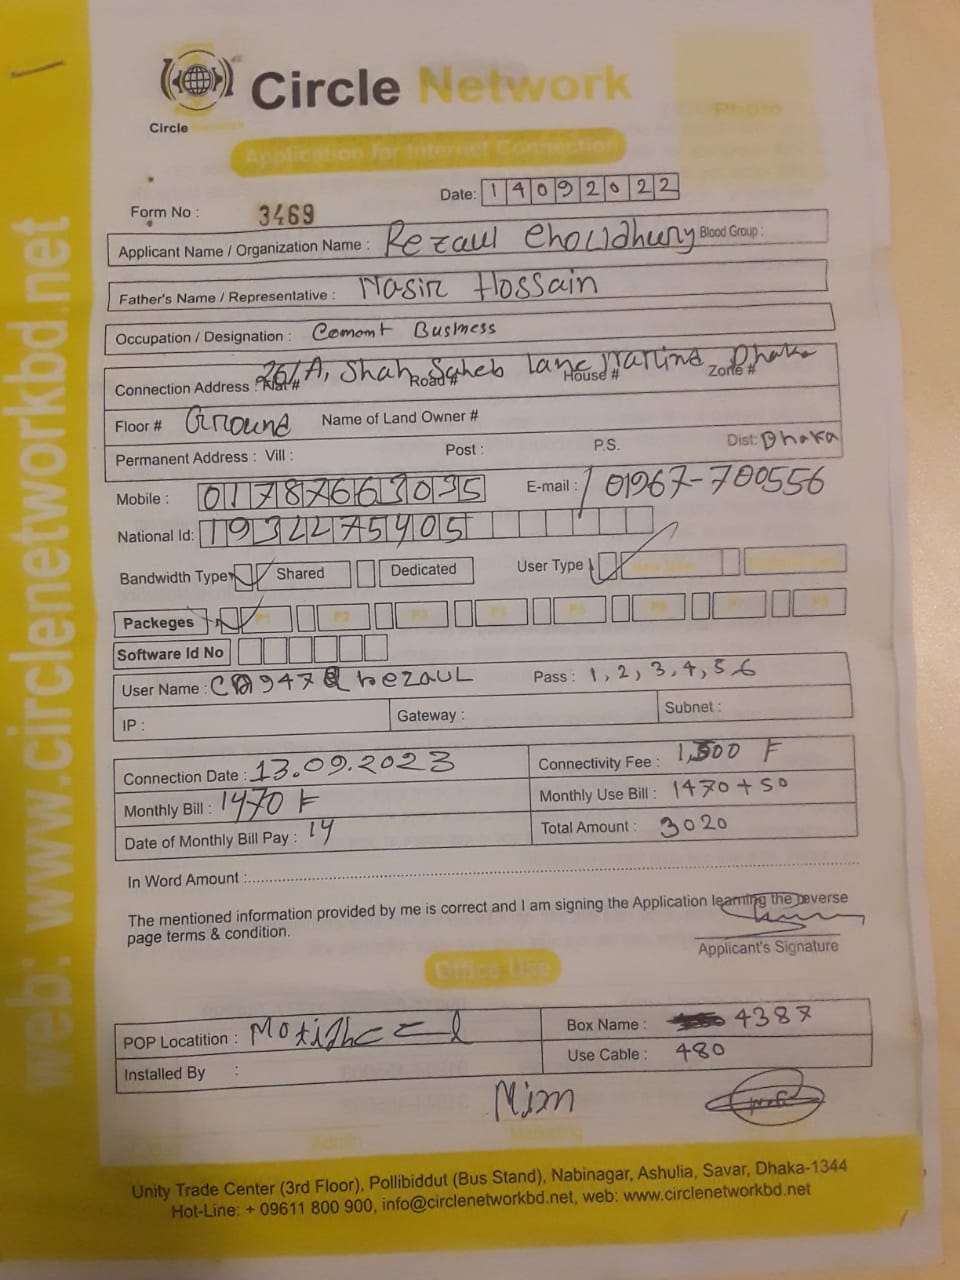 Circle Network
Circle
Photo
Application for Internet Connection
Date: 14092022
Form No : 3469
Applicant Name / Organization Name : Rezaul Chowdhury Blood Group :
Father's Name / Representative : Nasir Hossain
Occupation / Designation : Cement Business
Connection Address : Flat # Road # House # Zone #
Shah Saheb Lane Dhaka
Floor # Ground Name of Land Owner #
Permanent Address : Vill : Post : P.S. Dist: Dhaka
Mobile : 01787663035 E-mail : / 01967-700556
National Id: 1932275405
Bandwidth Type Shared Dedicated User Type
Packeges P1 P2 P3 P4 P5 P6 P7 P8
Software Id No
User Name : Pass : 1,2,3,4,5,6
IP : Gateway : Subnet :
Connection Date : 13.09.2023 Connectivity Fee :
Monthly Bill : 1470 Monthly Use Bill : 1470+50
Date of Monthly Bill Pay : 14 Total Amount : 3020
In Word Amount :
The mentioned information provided by me is correct and I am signing the Application learning the reverse
page terms & condition.
Applicant's Signature
Office Use
POP Locatition : Motijheel Box Name : 4387
Installed By : Use Cable : 480
Unity Trade Center (3rd Floor), Pollibiddut (Bus Stand), Nabinagar, Ashulia, Savar, Dhaka-1344
Hot-Line: + 09611 800 900, info@circlenetworkbd.net, web: www.circlenetworkbd.net
web: www.circlenetworkbd.net